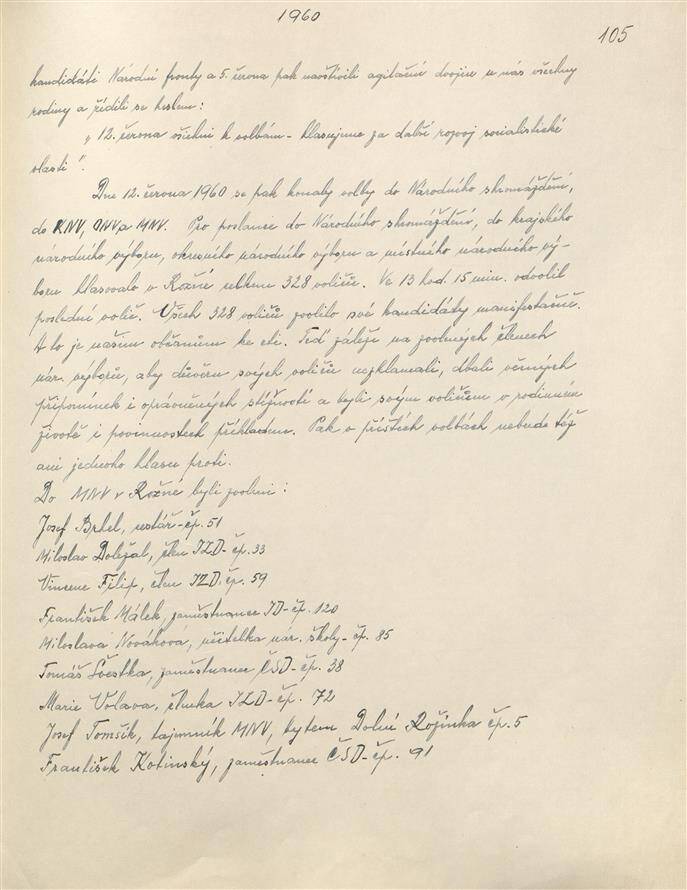 1960
105
kandidáti Národní fronty a 5. června pak navštívili agitační dvojice u nás všechny
rodiny a řídili se heslem:
„12. června všichni k volbám - hlasujeme za další rozvoj socialistické
vlasti".
Dne 12. června 1960 se pak konaly volby do Národního shromáždění,
do KNV, ONV a MNV. Pro poslance do Národního shromáždění, do krajského
národního výboru, okresního národního výboru a místního národního vý-
boru hlasovalo v Rožné celkem 328 voličů. Ve 13 hod. 15 min. odvolil
poslední volič. Všech 328 voličů zvolilo své kandidáty manifestačně.
A to je našim občanům ke cti. Teď záleží na zvolených členech
nár. výborů, aby důvěru svých voličů nezklamali, dbali věcných
připomínek i oprávněných stížností a byli svým voličům v rodinném
životě i povinnostech příkladem. Pak v příštích volbách nebude též
ani jednoho hlasu proti.
Do MNV v Rožné byli zvoleni:
Josef Brhel, cestář - čp. 51
Miloslav Doležal, člen JZD - čp. 33
Vincenc Filip, člen JZD. čp. 59
František Málek, zaměstnanec JD - čp. 120
Miloslava Nováková, učitelka nár. školy - čp. 85
Tomáš Švestka, zaměstnanec ČSD - čp. 38
Marie Volavá, členka JZD - čp. 72
Josef Tomšík, tajemník MNV, bytem Dolní Rožínka čp. 5
František Kotinský, zaměstnanec ČSD - čp. 91